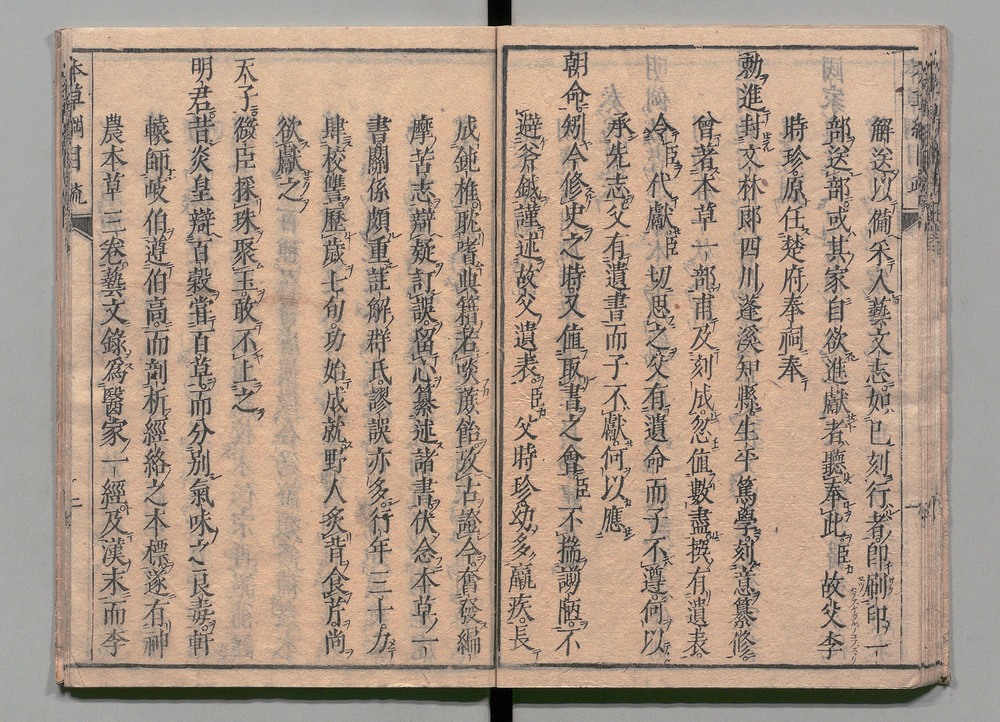 解送以備采入藝文志如已刻行者即刷印一
部送部或其家自欲進獻者聽奉此臣故父李
時珍原任楚府奉祠奉
勅進封文林郎四川蓬溪知縣生平篤學刻意纂修
曾著本草一部甫及刻成忽值數盡撰有遺表
令臣代獻臣切思之父有遺命而子不遵何以
承先志父有遺書而子不獻何以應
朝命矧今修史之時又值取書之會臣不揣譾陋不
避斧鉞謹述故父遺表臣父時珍幼多羸疾長
成鈍椎耽嗜典籍若啖蔗飴攷古證今奮發編
摩苦志辯疑訂誤留心纂述諸書伏念本草一
書關係頗重註解群氏謬誤亦多行年三十力
肆校讐歷歲七旬功始成就野人炙背食芹尚
欲獻之
天子微臣採珠聚玉敢不上之
明君昔炎皇辯百穀甞百草而分別氣味之良毒軒
轅師岐伯遵伯高而剖析經絡之本標遂有神
農本草三卷藝文錄爲醫家一經及漢末而李
本草綱目 疏